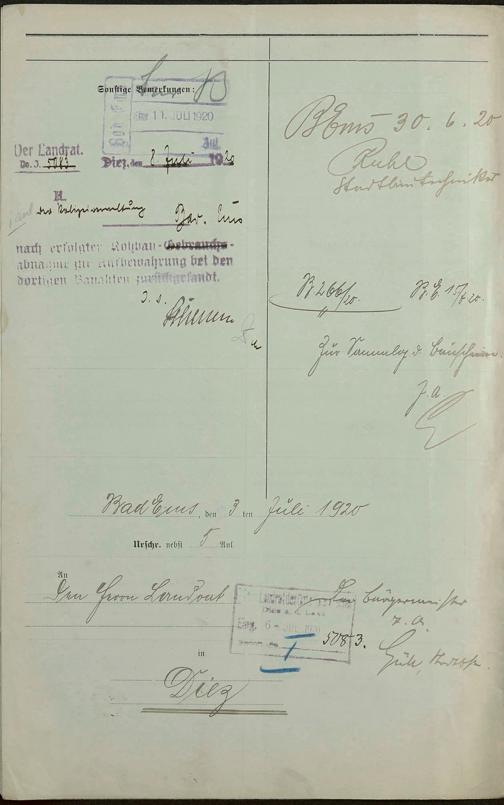 Sonstige Bemerkungen:
11. JULI 1920
Der Landrat.
No. I. 5083
Diez, den 8. Juli 1920
K.
der Polizeiverwaltung
Bad Ems
nach erfolgter Rohbau-Gebrauchs-
abnahme zur Aufbewahrung bei den
dortigen Bauakten zurückgesandt.
BEms 30.6.20
Ruhl
Stadtbautechniker
B. 266/20.
B.E. 17/7.20.
Zur Sammlg d. Bauscheine
J. A.
Bad Ems, den 3ten Juli 1920
Urschr. nebst 5 Anl
An
Den Herrn Landrat
in
Diez
Der Bürgermeister
J. A.
Eing. 6. JUL. 1920
I 5083.